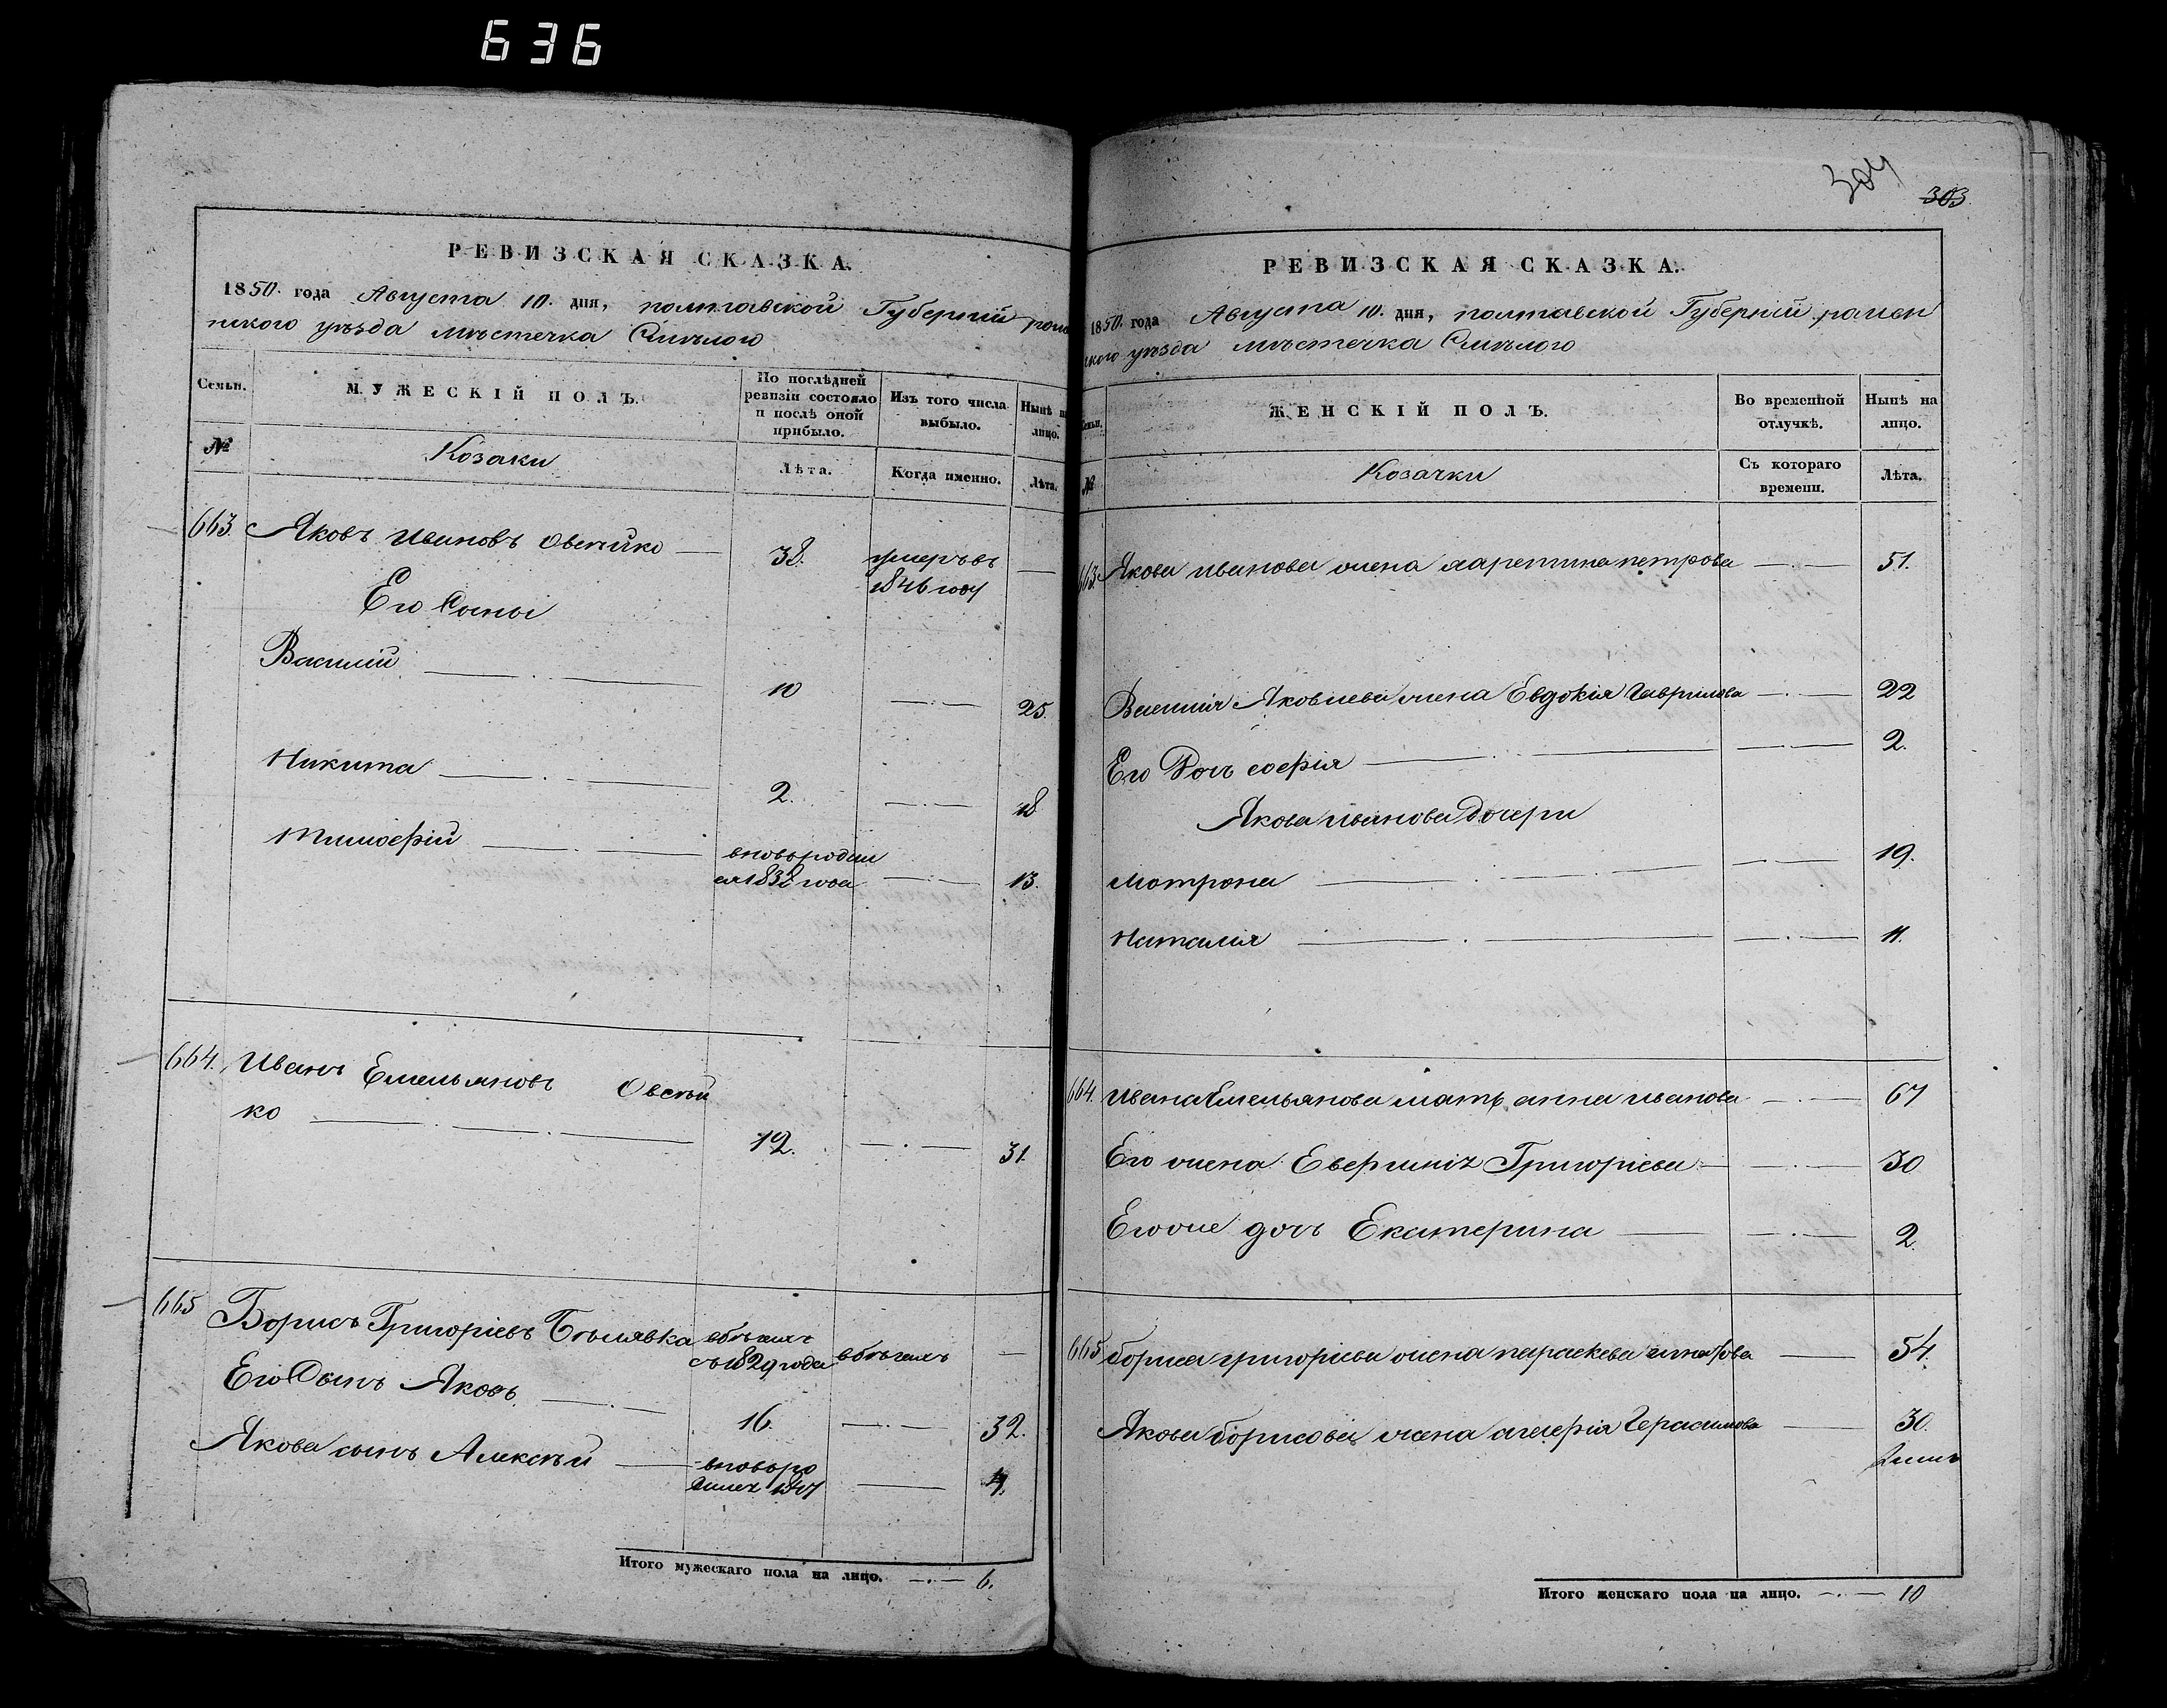 636
304
303
РЕВИЗСКАЯ СКАЗКА.
1850. года Августа 10. дня, полтавской Губерніи роме
нского уѣзда мѣстечка Смѣлого
Семьи.
МУЖЕСКІЙ ПОЛЪ.
По послѣдней ревизіи состояло и послѣ оной прибыло.
Изъ того числа выбыло.
Нынѣ на лицо.
№
Козаки
Лѣта.
Когда именно.
Лѣта.
663. Яковъ Ивановъ Овсѣйко — 38. умеръ въ —
1846 году
Его Сыны
Василій — 10 — 25.
Никита — 2. — 18
Тимофѣй — вновьродил — 13.
ся 1838 года
664. Иванъ Емельяновъ Овсѣй
ко — 12. — 31.
665 Борисъ Григоріевъ Бѣлявка вбѣгахъ вбѣгахъ —
съ 1829 года
Его Сынъ Яковъ. — 16. — 32.
Якова сынъ Алексѣй — вновьро — 4.
дился 1847
Итого мужескаго пола на лицо. — 6.
РЕВИЗСКАЯ СКАЗКА.
1850. года Августа 10. дня, полтавской Губерніи ромен
ского уѣзда мѣстечка Смѣлого
Семьи.
ЖЕНСКІЙ ПОЛЪ.
Во временной отлучкѣ.
Нынѣ на лицо.
№
Козачки
Съ котораго времени.
Лѣта.
663. Якова иванова жена петрова — 51.
Василія Яковлева жена Евдокія Гаврилова — 22
Его Дочь софія — 2.
Якова иванова дочери
Мотрона — 19.
Наталія — 11.
664. Ивана Емельянова мать анна иванова — 67
Его жена Григоріева — 30
Егоже дочь Екатерина — 2.
665 бориса григоріева жена параскева — 54.
Якова борисова жена Герасимова — 30.
Итого женскаго пола на лицо. — 10